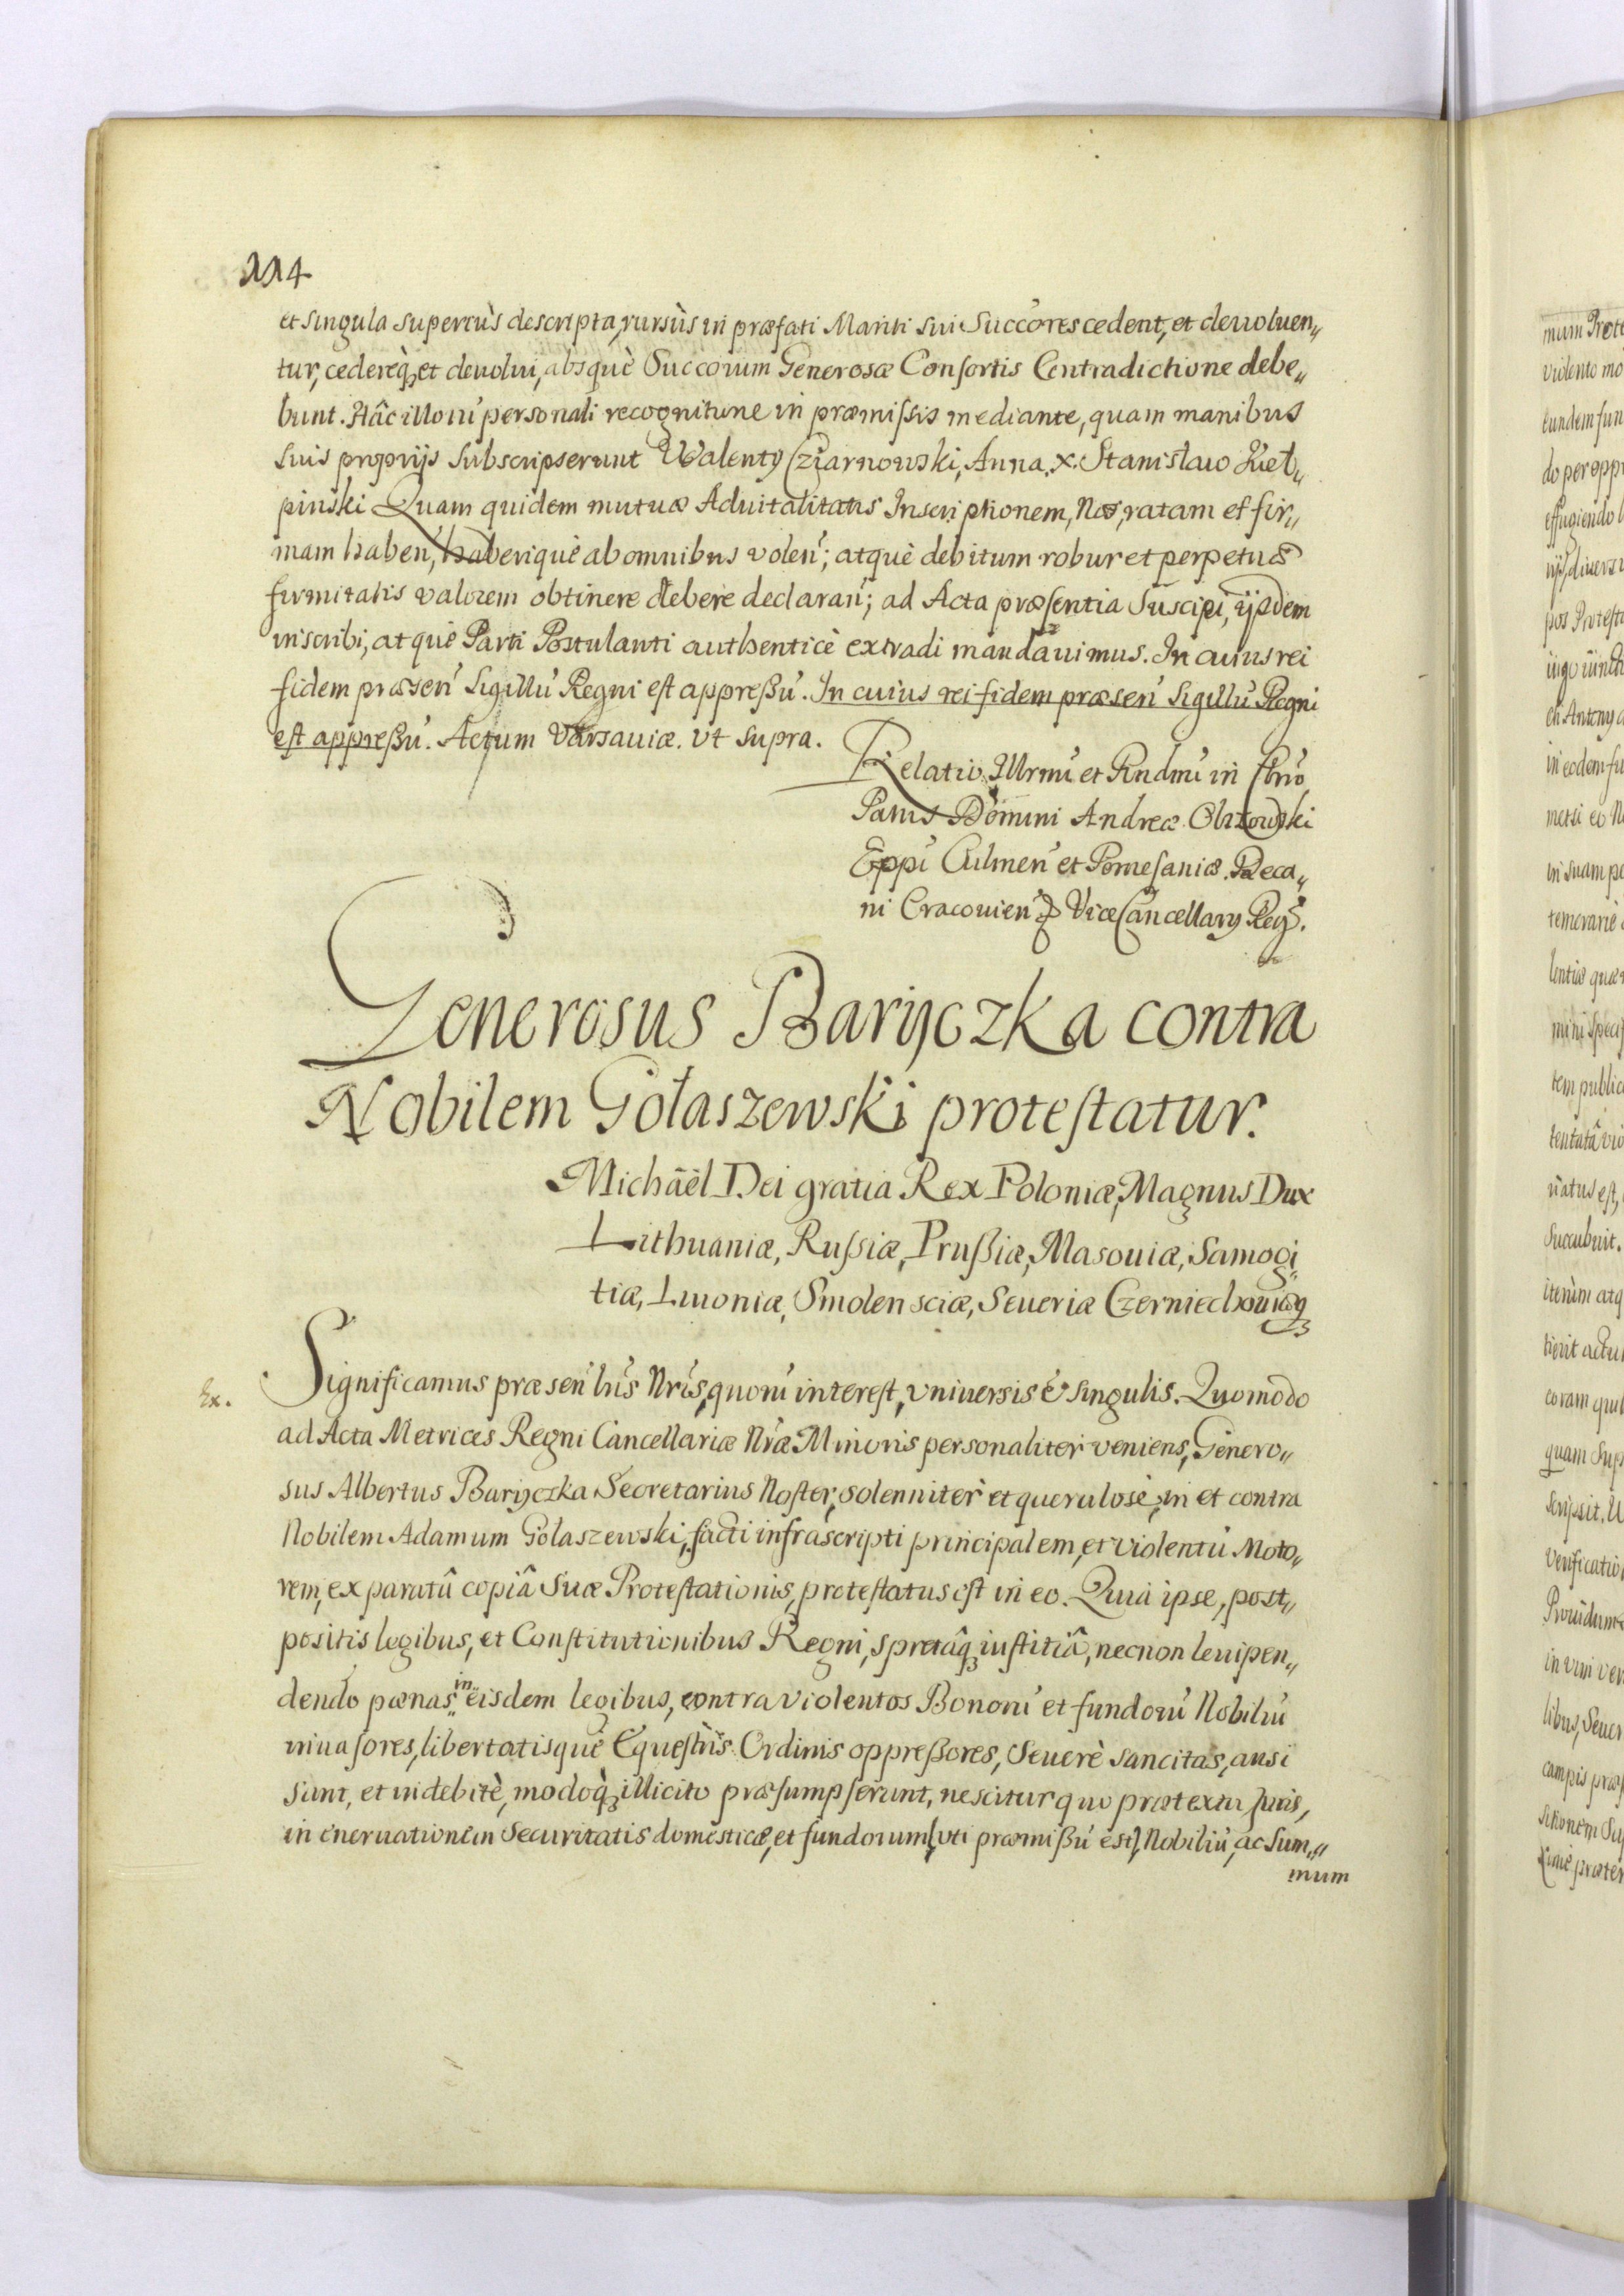 114
et singula superiùs descripta, rursùs in præfati Mariti sui Succores cedent, et deuoluen„
tur, cedereq, et deuolui, absquè Succorum Generosæ Consortis Contradictione debe„
bunt. Hâc illoru' personali recognitione in præmissis mediante, quam manibus
suis proprijs subscripserunt Walenty Cziarnowski, Anna. x. Stanislaw Kieł„
pinski Quam quidem mutuæ Aduitalitatis Inscriptionem, Nos, ratam et fir„
mam haben', haberique ab omnibus volen'; atquè debitum robur et perpetuæ
firmitatis valorem obtinere debere declaran'; ad Acta præsentia Suscipi, ijsdem
inscribi, atquè Parti Postulanti authenticè extradi mandauimus. In cuius rei
fidem præsen' Sigillu' Regni est appreßu'. In cuius rei fidem præsen' Sigillu' Regni
est appreßu'. Actum Varsauiæ. vt supra.
Relatio Illrmi et Rndmi in Chro
Patris Domini Andreæ Olszowski
Eppi Culmen' et Pomesaniæ. Deca„
ni Cracouien' Vice Cancellary Reg.
Generosus Baryczka contra
Nobilem Gołaszewski protestatur.
Michäel Dei gratia Rex Poloniæ, Magnus Dux
Lithuaniæ, Rußiæ, Prußiæ, Masouiæ, Samogi„
tiæ, Liuoniæ, Smolensciæ, Seueriæ Czerniechouiæq
Ex.
Significamus præsen' lris Nris, quoru' interest, vniuersis & singulis. Quomodo
ad Acta Metrices Regni Cancellariæ Nræ Minoris personaliter veniens, Genero„
sus Albertus Baryczka Secretarius Noster, solenniter et querulosè, in et contra
Nobilem Adamum Gołaszewski, facti infrascripti principalem, et violentu' Moto„
rem, ex paratâ copiâ suæ Protestationis, protestatus est in eo. Quia ipse, post„
positis legibus, et Constitutionibus Regni, spretâq iustitiâ, necnon leuipen„
dendo pœnas in eisdem legibus, contra violentos Bonoru' et fundoru' Nobiliu'
inuasores, libertatisquè Equestris Ordinis oppreßores, Seuerè sancitas, ausi
sunt, et indebitè, modoq illicito præsumpserunt, nescitur quo prætextu Juris,
in eneruationem Securitatis domesticæ, et fundorum (vti præmißu' est) Nobiliu', ac Sum„
mum